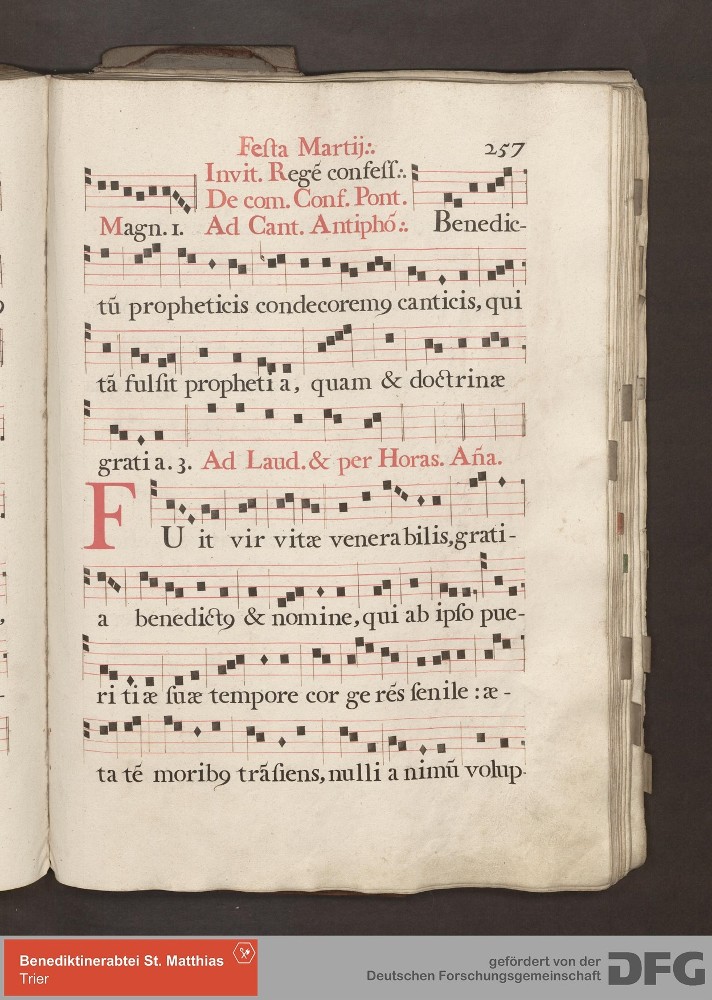 Feſta Martij∴ 257
Invit. Regē confeſſ∴
De com. Conf. Pont.
Magn. 1. Ad Cant. Antiphō∴ Benedic-
tū propheticis condecorem9 canticis, qui
tā fulſit propheti a, quam & doctrinæ
grati a. 3. Ad Laud. & per Horas. Aña.
FU it vir vitæ venera bilis, grati-
a benedict9 & nomine, qui ab ipſo pue-
ri ti æ ſuæ tempore cor ge rēs ſenile : æ-
ta tē morib9 trāſiens, nulli a nimū volup-
Benediktinerabtei St. Matthias
Trier
gefördert von der
Deutschen Forschungsgemeinschaft
DFG